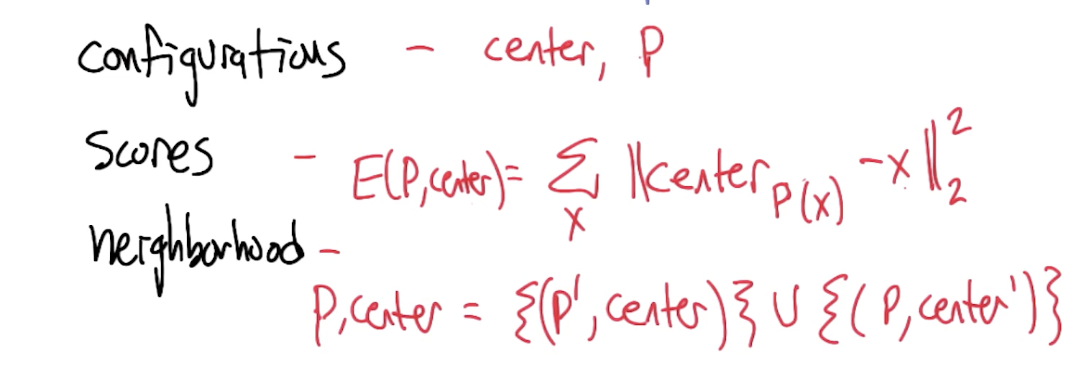 configurations - center, P
Scores - E(P,center)= Σ_x ||center_P(x) -x||_2^2
neighborhood -
P,center = {(P',center)} ∪ {(P,center')}